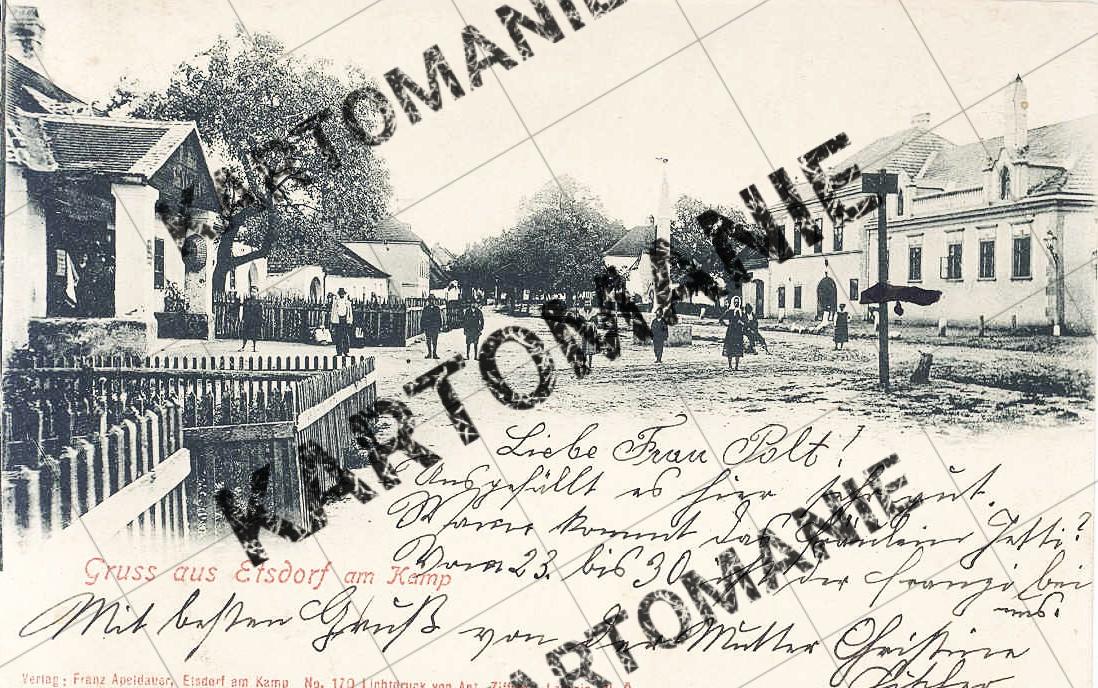 KARTOMANIE
KARTOMANIE
KARTOMANIE
KARTOMANIE
Liebe Frau Polt!
Uns gefällt es hier sehr gut.
Wann kommt das Fräulein Jetti?
Vom 23. bis 30 ist der Franzi bei
uns.
Gruss aus Etsdorf am Kamp
Mit besten Gruß von der Mutter Christine
Verlag: Franz Apeldauer, Etsdorf am Kamp No. 170 Lichtdruck von Ant.